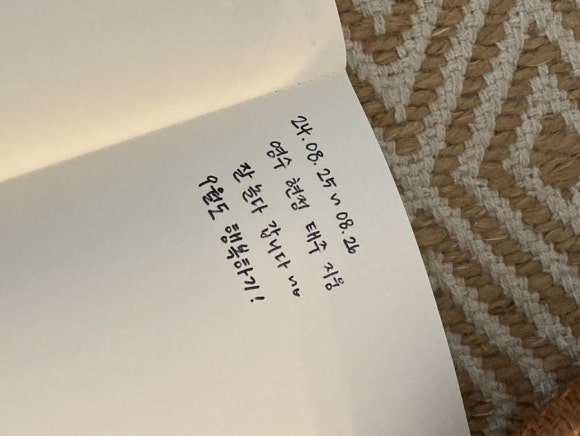 24.08.25~08.26
영수 현정 태주 지웅
잘 놀다 갑니다 ~~
9월도 행복하기!